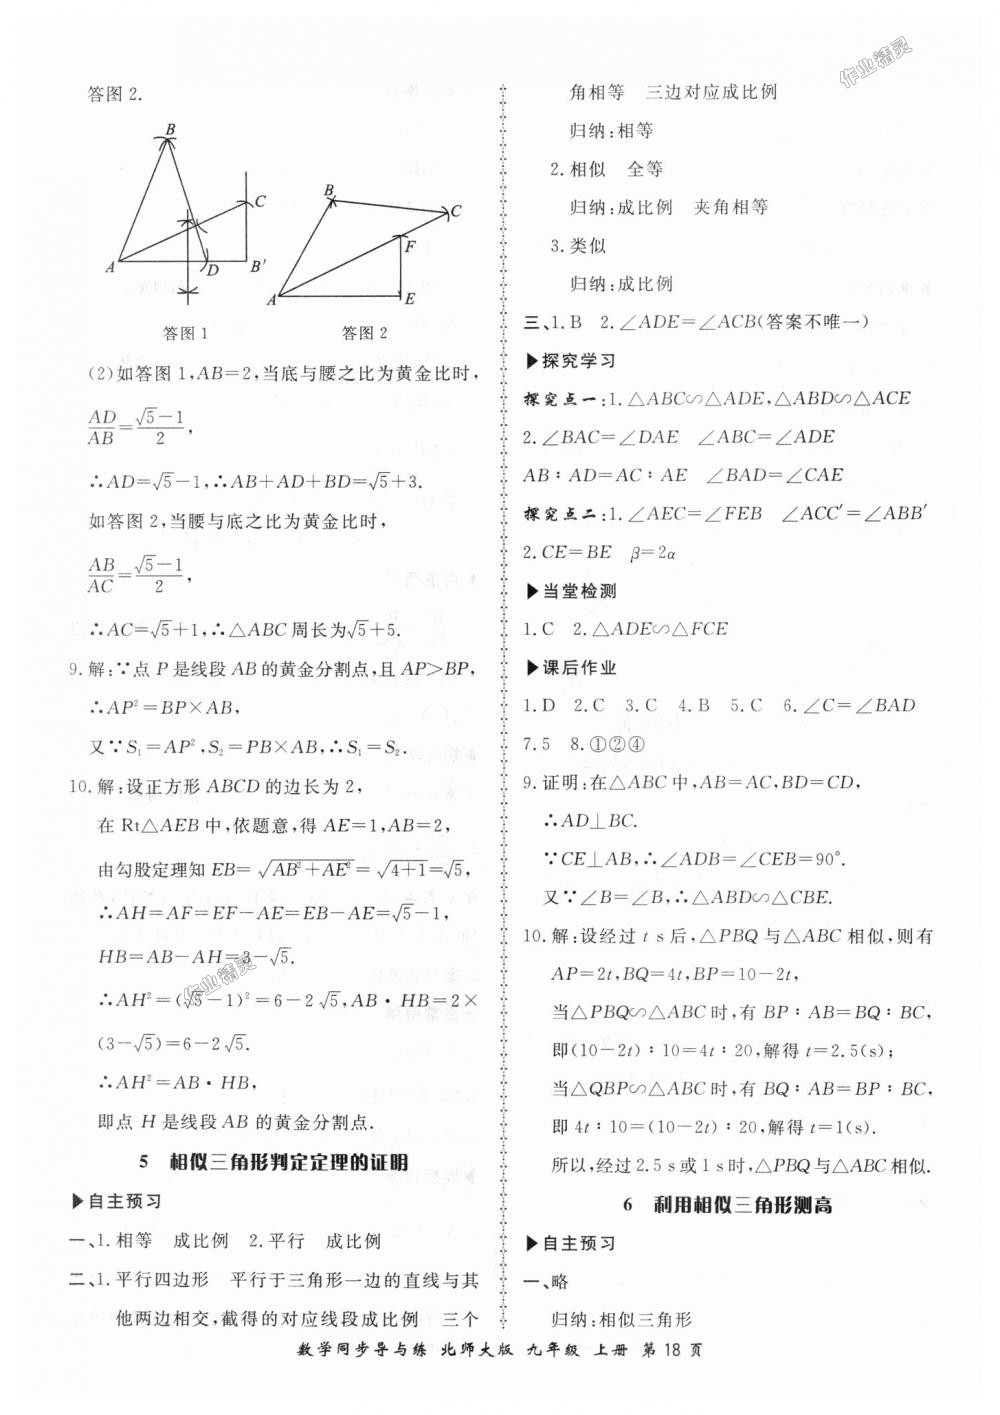 答图 2.
B
C
A
D
B′
B
C
F
A
E
答图 1
答图 2
(2)如答图 1,AB=2,当底与腰之比为黄金比时,
AD/AB=(√5−1)/2,
∴AD=√5−1,∴AB+AD+BD=√5+3.
如答图 2,当腰与底之比为黄金比时,
AB/AC=(√5−1)/2,
∴AC=√5+1,∴△ABC 周长为√5+5.
9.解:∵点 P 是线段 AB 的黄金分割点,且 AP>BP,
∴AP²=BP×AB,
又∵S₁=AP²,S₂=PB×AB,∴S₁=S₂.
10.解:设正方形 ABCD 的边长为 2,
在 Rt△AEB 中,依题意,得 AE=1,AB=2,
由勾股定理知 EB=√(AB²+AE²)=√(4+1)=√5,
∴AH=AF=EF−AE=EB−AE=√5−1,
HB=AB−AH=3−√5.
∴AH²=(√5−1)²=6−2√5,AB·HB=2×
(3−√5)=6−2√5.
∴AH²=AB·HB,
即点 H 是线段 AB 的黄金分割点.
5 相似三角形判定定理的证明
▶自主预习
一、1.相等 成比例 2.平行 成比例
二、1.平行四边形 平行于三角形一边的直线与其
他两边相交,截得的对应线段成比例 三个
角相等 三边对应成比例
归纳:相等
2.相似 全等
归纳:成比例 夹角相等
3.类似
归纳:成比例
三、1.B 2.∠ADE=∠ACB(答案不唯一)
▶探究学习
探究点一:1.△ABC∽△ADE,△ABD∽△ACE
2.∠BAC=∠DAE ∠ABC=∠ADE
AB∶AD=AC∶AE ∠BAD=∠CAE
探究点二:1.∠AEC=∠FEB ∠ACC′=∠ABB′
2.CE=BE β=2α
▶当堂检测
1.C 2.△ADE∽△FCE
▶课后作业
1.D 2.C 3.C 4.B 5.C 6.∠C=∠BAD
7.5 8.①②④
9.证明:在△ABC 中,AB=AC,BD=CD,
∴AD⊥BC.
∵CE⊥AB,∴∠ADB=∠CEB=90°.
又∵∠B=∠B,∴△ABD∽△CBE.
10.解:设经过 t s 后,△PBQ 与△ABC 相似,则有
AP=2t,BQ=4t,BP=10−2t,
当△PBQ∽△ABC 时,有 BP∶AB=BQ∶BC,
即(10−2t)∶10=4t∶20,解得 t=2.5(s);
当△QBP∽△ABC 时,有 BQ∶AB=BP∶BC,
即 4t∶10=(10−2t)∶20,解得 t=1(s).
所以,经过 2.5 s 或 1 s 时,△PBQ 与△ABC 相似.
6 利用相似三角形测高
▶自主预习
一、略
归纳:相似三角形
数学同步导与练 北师大版 九年级 上册 第 18 页
作业精灵
作业精灵